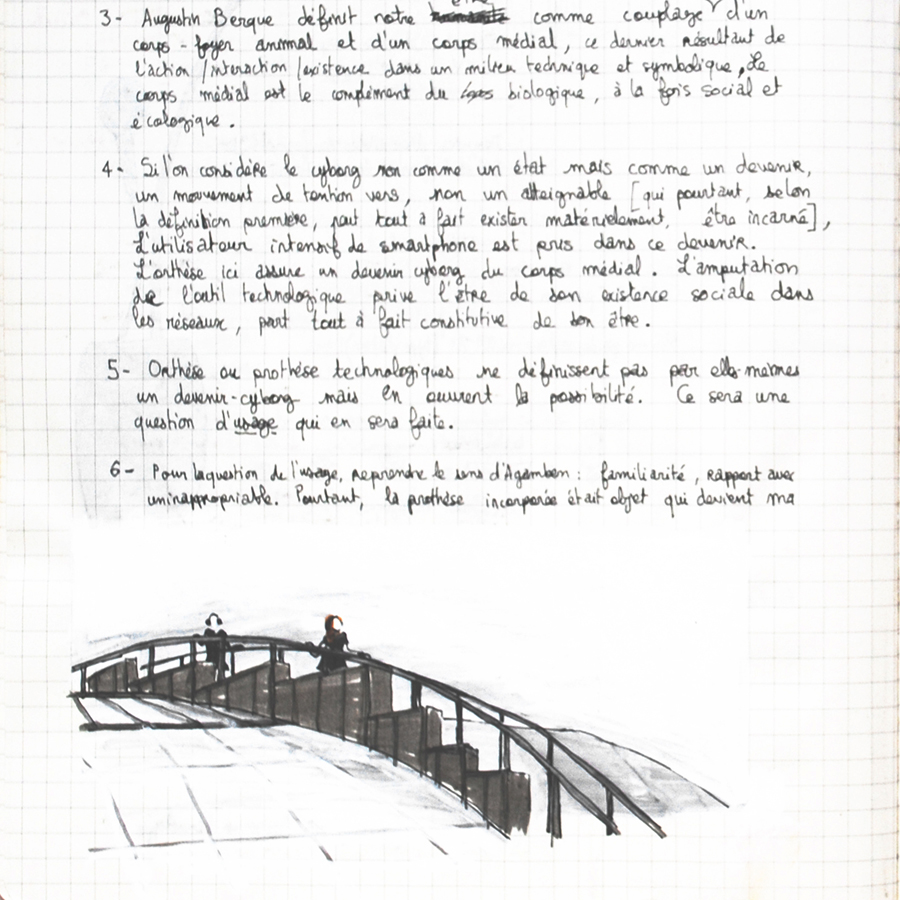 être
3- Augustin Berque définit notre comme couplage d'un
corps-foyer animal et d'un corps médial, ce dernier résultant de
l'action/interaction/existence dans un milieu technique et symbolique, Le
corps médial est le complément du biologique, à la fois social et
écologique.
4- Si l'on considère le cyborg non comme un état mais comme un devenir,
un mouvement de tention vers, non un atteignable [qui pourtant, selon
la définition première, peut tout a fait exister matériellement, être incarné],
L'utilisateur intensif de smartphone est pris dans ce devenir.
L'orthèse ici assure un devenir cyborg du corps médial. L'amputation
de l'outil technologique prive l'être de son existence sociale dans
les réseaux, part tout à fait constitutive de son être.
5- Orthèse ou prothèse technologiques ne définissent pas par elles-mêmes
un devenir-cyborg mais en ouvrent la possibilité. Ce sera une
question d'usage qui en sera faite.
6- Pour la question de l'usage, reprendre le sens d'Agamben : familiarité, rapport avec
un inappropriable. Pourtant, la prothèse incorporée était objet qui devient ma